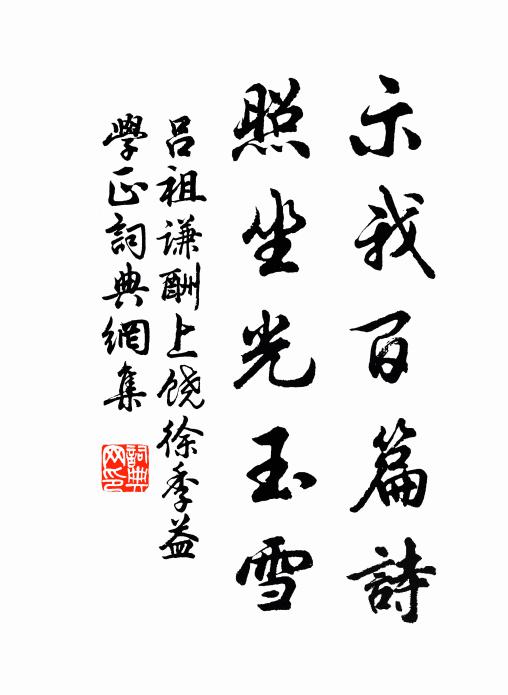 示我百篇詩
照坐光玉雪
呂祖谦酬上饶徐季益
學正詞典網集
詞典
网印